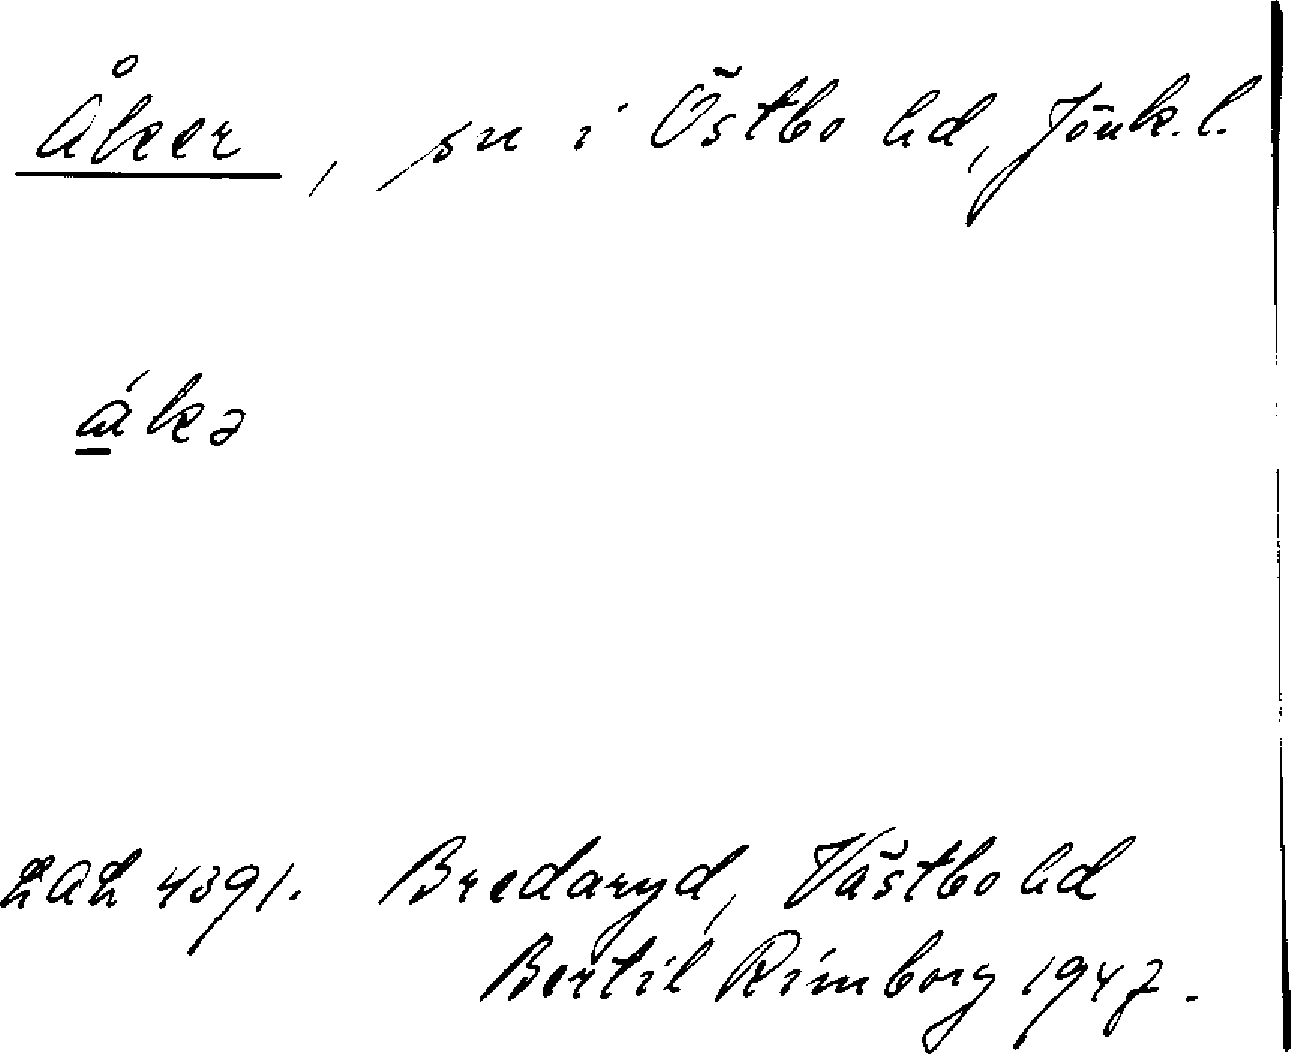 Åker, sn i Östbo hd, Jönk.l.
á̲kə
LAL 4391. Bredaryd, Västbo hd
Bertil Rimborg 1947.